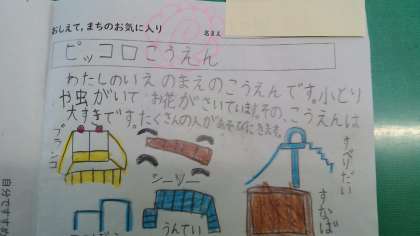 おしえて、まちのお気に入り
名まえ
ピッコロこうえん
わたしのいえのまえのこうえんです。小とり
や虫がいて、お花がさいています。その、こうえんは
大すきです。たくさんの人があそびにきます。
ブランコ
シーソー
すべりだい
うんてい
すなば